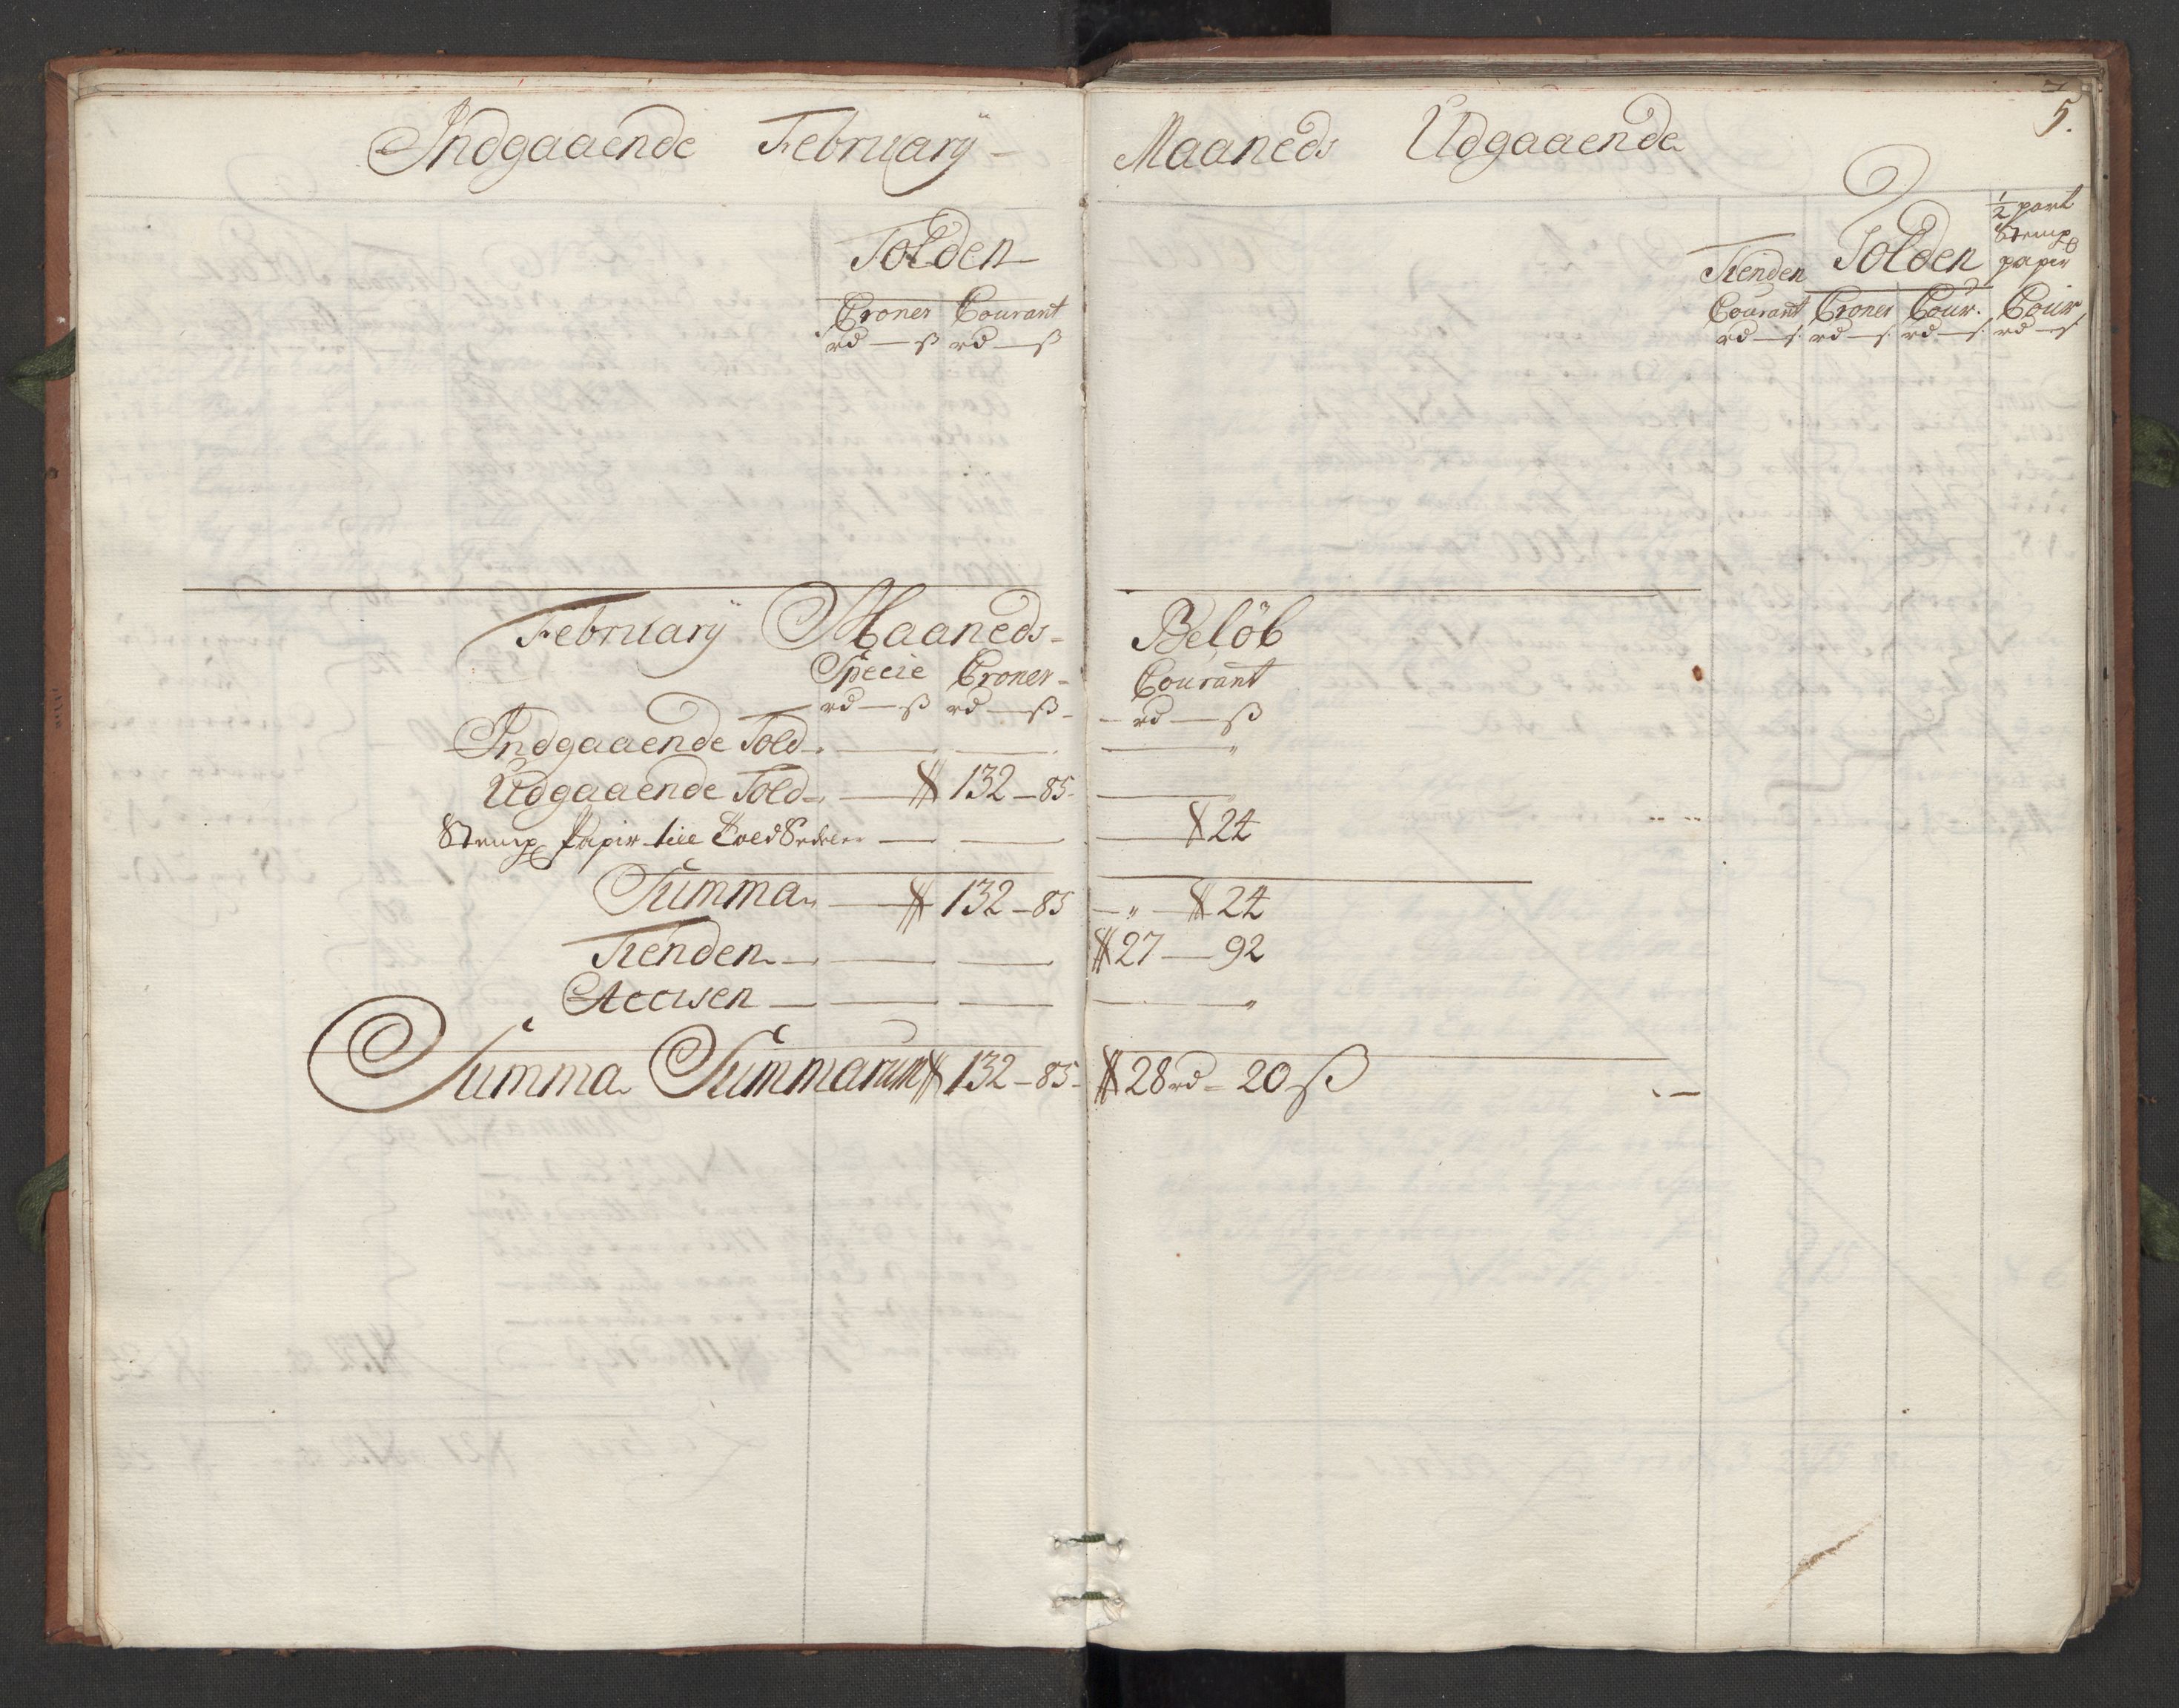 Indgaaende Februarÿ - Maaneds Udgaaende
5.
Tolden
Croner Courant
rd — ß rd — ß
Tienden Tolden ½ part Stemp papir
Courant Croner Cour. Cour.
rd — ß rd — ß rd — ß rd — ß
Februarÿ Maaneds - Beløb
Specie Croner - Courant
rd — ß rd — ß - rd — ß
Indgaaende Told — — — "
Udgaaende Told — 132 - 85 - —
Stemp Papir till Told Sedeler — — — 24
Summa — 132 - 85 — " — 24
Tienden — — — 27 — 92
Accisen — — — "
Summa Summarum 132 - 85 - 28 rd - 20 ß